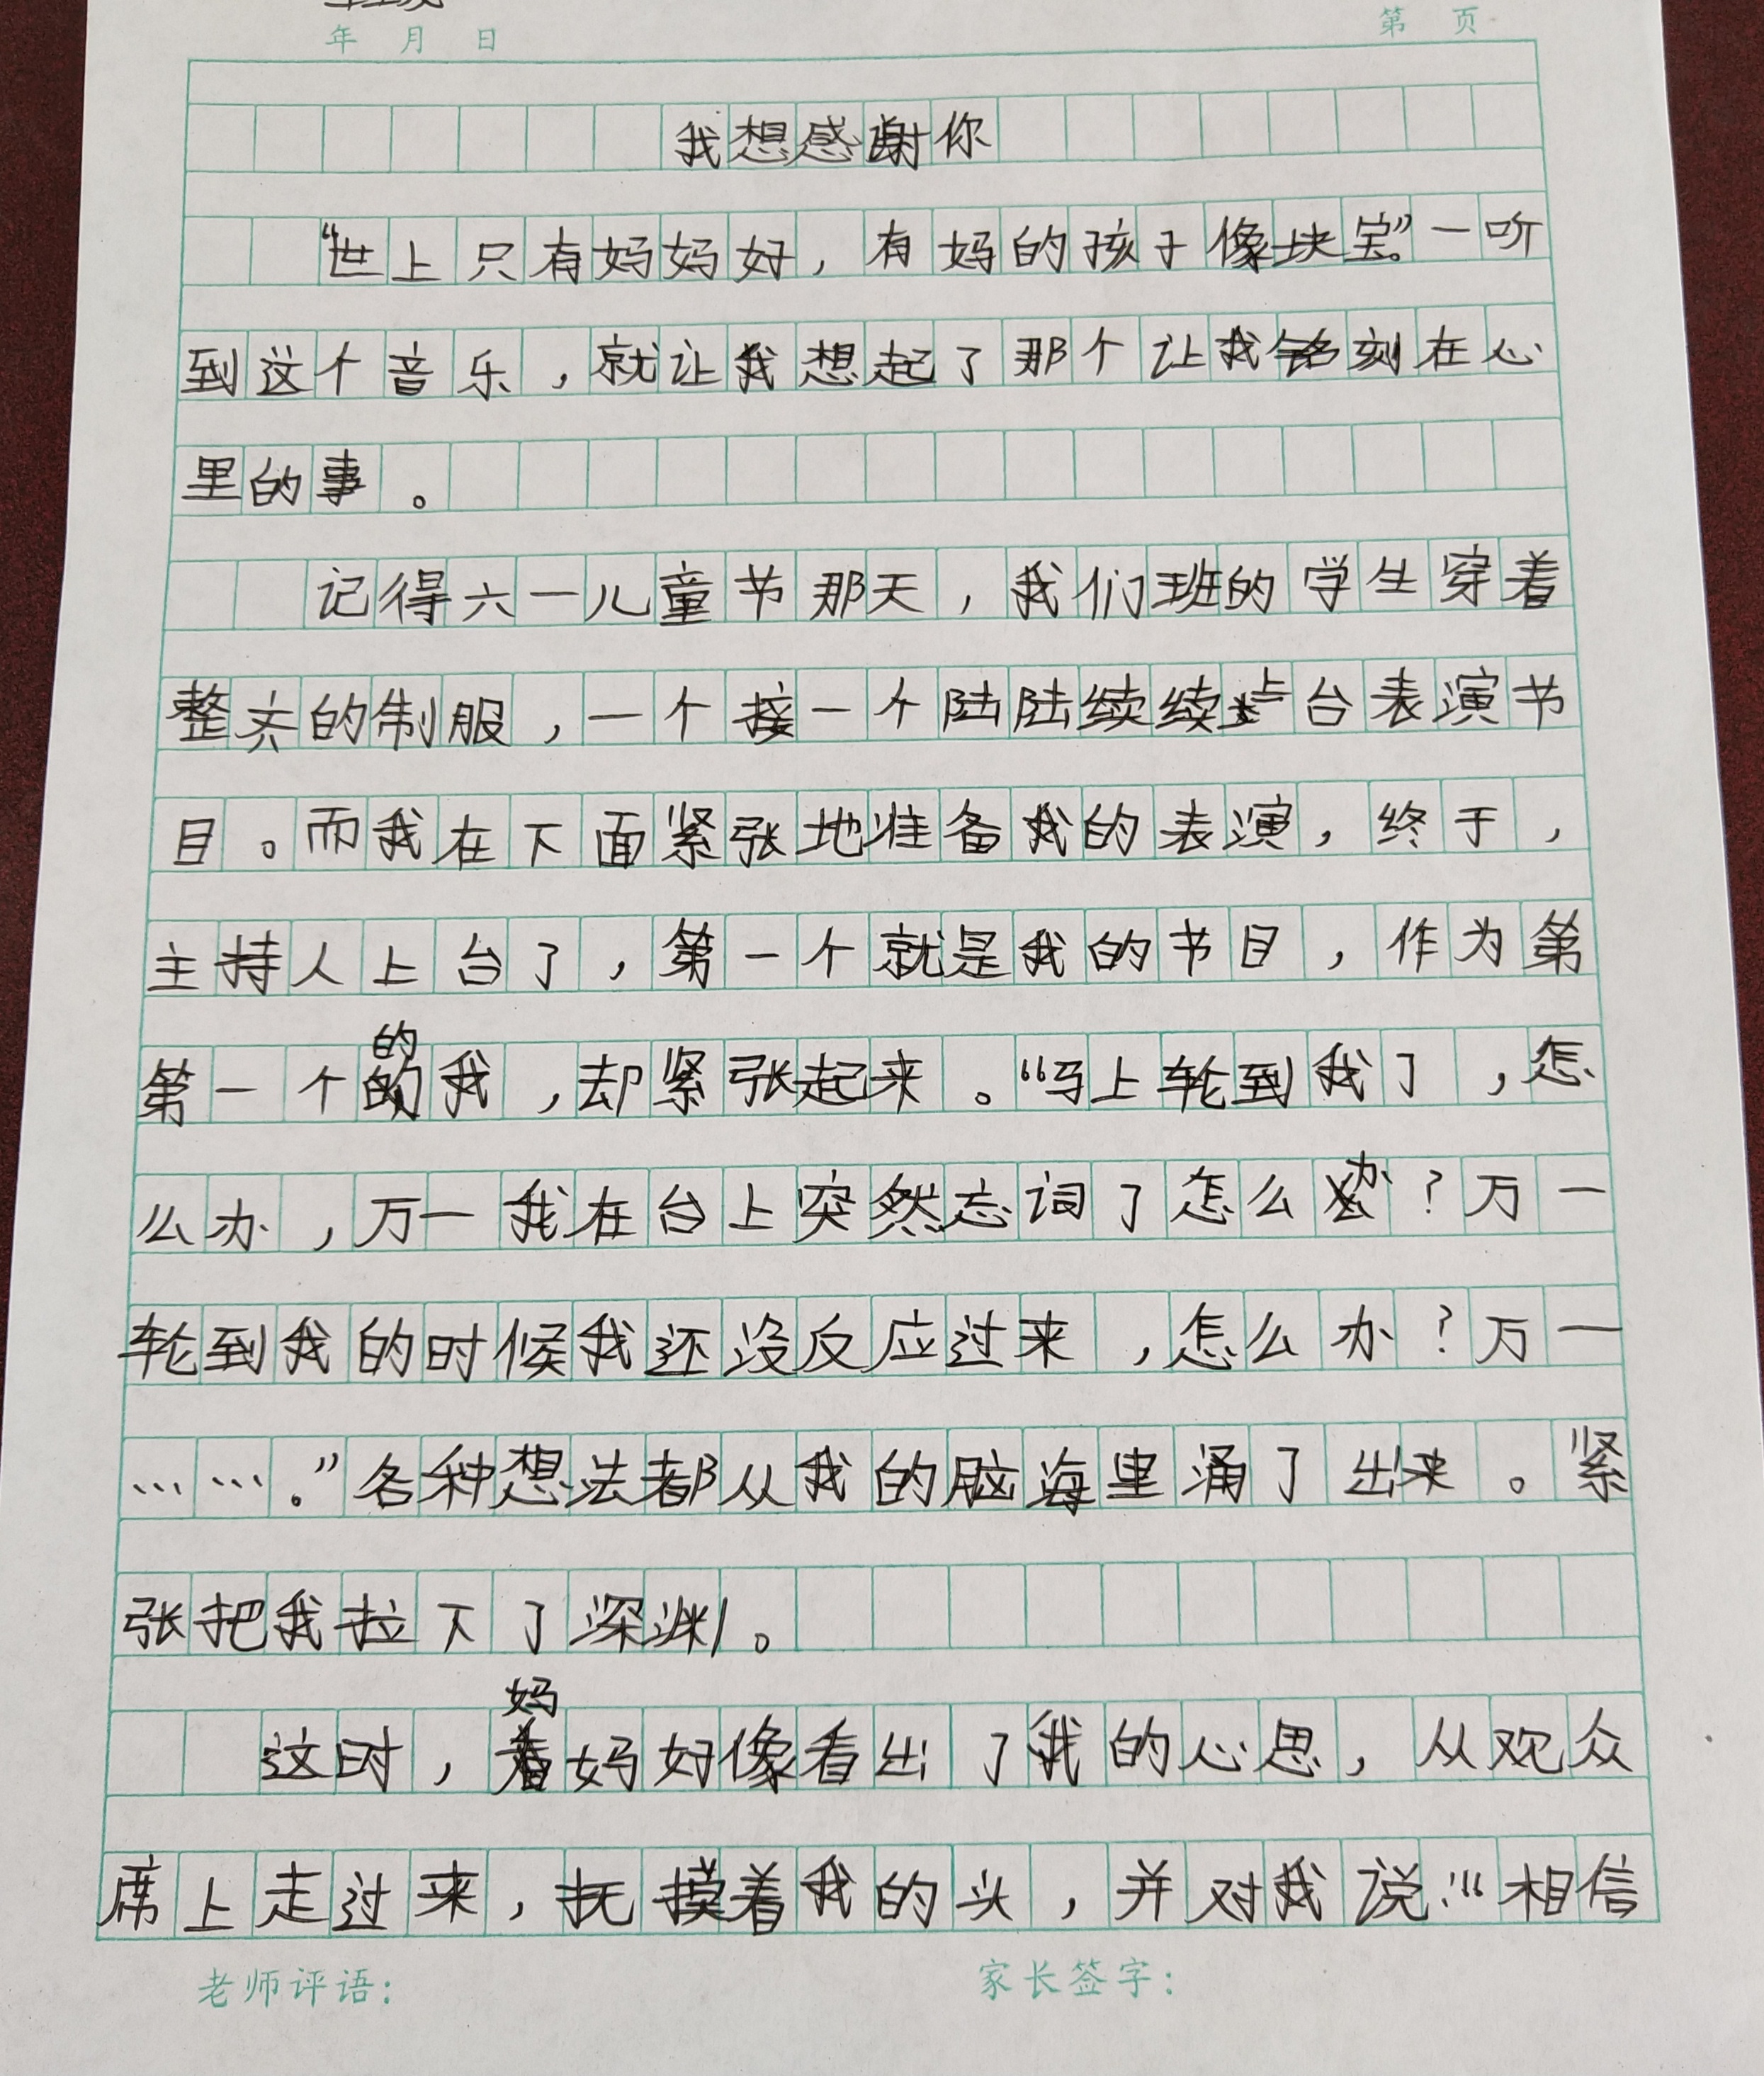 年 月 日
第 页
我想感谢你
“世上只有妈妈好，有妈的孩子像块宝。”一听
到这个音乐，就让我想起了那个让我铭刻在心
里的事。
记得六一儿童节那天，我们班的学生穿着
整齐的制服，一个接一个陆陆续续上台表演节
目。而我在下面紧张地准备我的表演，终于，
主持人上台了，第一个就是我的节目，作为第
第一个的我，却紧张起来。“马上轮到我了，怎
么办，万一我在台上突然忘词了怎么办？万一
轮到我的时候我还没反应过来，怎么办？万一
……。”各种想法都从我的脑海里涌了出来。紧
张把我拉下了深渊。
这时，妈妈好像看出了我的心思，从观众
席上走过来，抚摸着我的头，并对我说：“相信
老师评语：
家长签字：